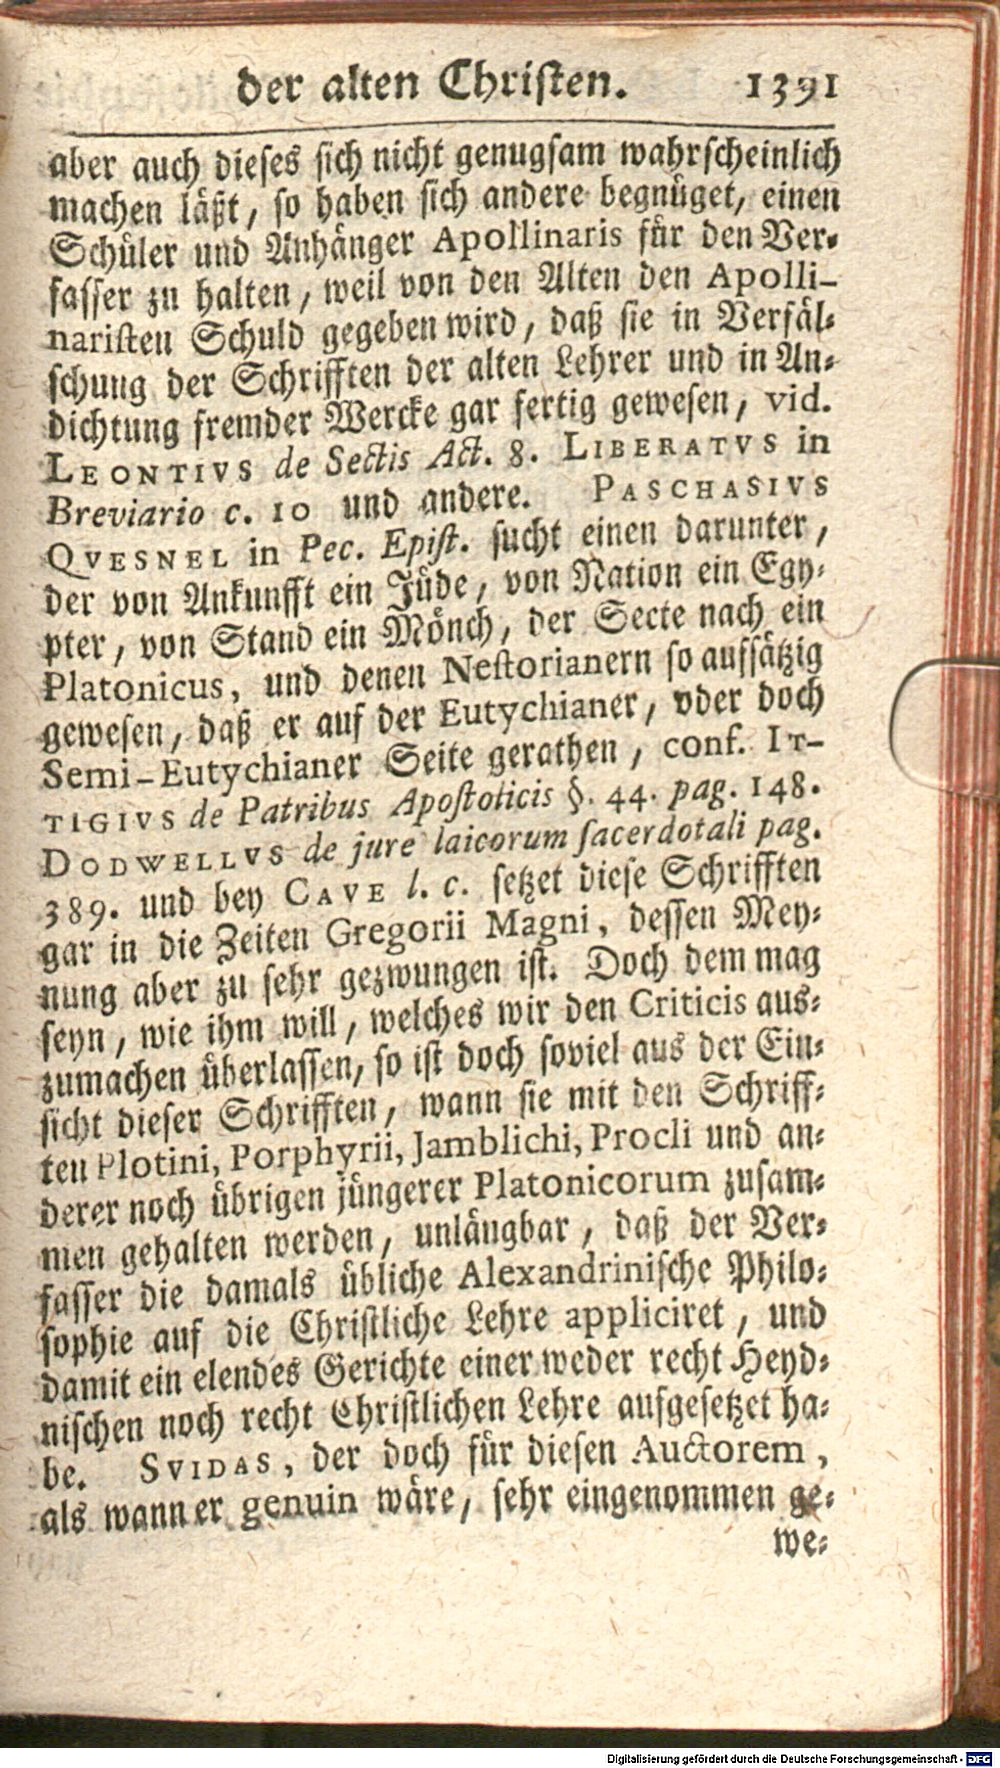 der alten Christen. 1391
aber auch dieses sich nicht genugsam wahrscheinlich
machen läßt, so haben sich andere begnüget, einen
Schüler und Anhänger Apollinaris für den Ver-
fasser zu halten, weil von den Alten den Apolli-
naristen Schuld gegeben wird, daß sie in Verfäl-
schung der Schrifften der alten Lehrer und in An-
dichtung fremder Wercke gar fertig gewesen, vid.
LEONTIVS de Sectis Act. 8. LIBERATVS in
Breviario c. 10 und andere. PASCHASIVS
QVESNEL in Pec. Epist. sucht einen darunter,
der von Ankunfft ein Jüde, von Nation ein Egy-
pter, von Stand ein Mönch, der Secte nach ein
Platonicus, und denen Nestorianern so aufsätzig
gewesen, daß er auf der Eutychianer, oder doch
Semi-Eutychianer Seite gerathen, conf. IT-
TIGIVS de Patribus Apostolicis §. 44. pag. 148.
DODWELLVS de jure laicorum sacerdotali pag.
389. und bey CAVE l. c. setzet diese Schrifften
gar in die Zeiten Gregorii Magni, dessen Mey-
nung aber zu sehr gezwungen ist. Doch dem mag
seyn, wie ihm will, welches wir den Criticis aus-
zumachen überlassen, so ist doch soviel aus der Ein-
sicht dieser Schrifften, wann sie mit den Schriff-
ten Plotini, Porphyrii, Jamblichi, Procli und an-
derer noch übrigen jüngerer Platonicorum zusam-
men gehalten werden, unläugbar, daß der Ver-
fasser die damals übliche Alexandrinische Philo-
sophie auf die Christliche Lehre appliciret, und
damit ein elendes Gerichte einer weder recht Heyd-
nischen noch recht Christlichen Lehre aufgesetzet ha-
be. SVIDAS, der doch für diesen Auctorem,
als wann er genuin wäre, sehr eingenommen ge-
we-
Digitalisierung gefördert durch die Deutsche Forschungsgemeinschaft - DFG